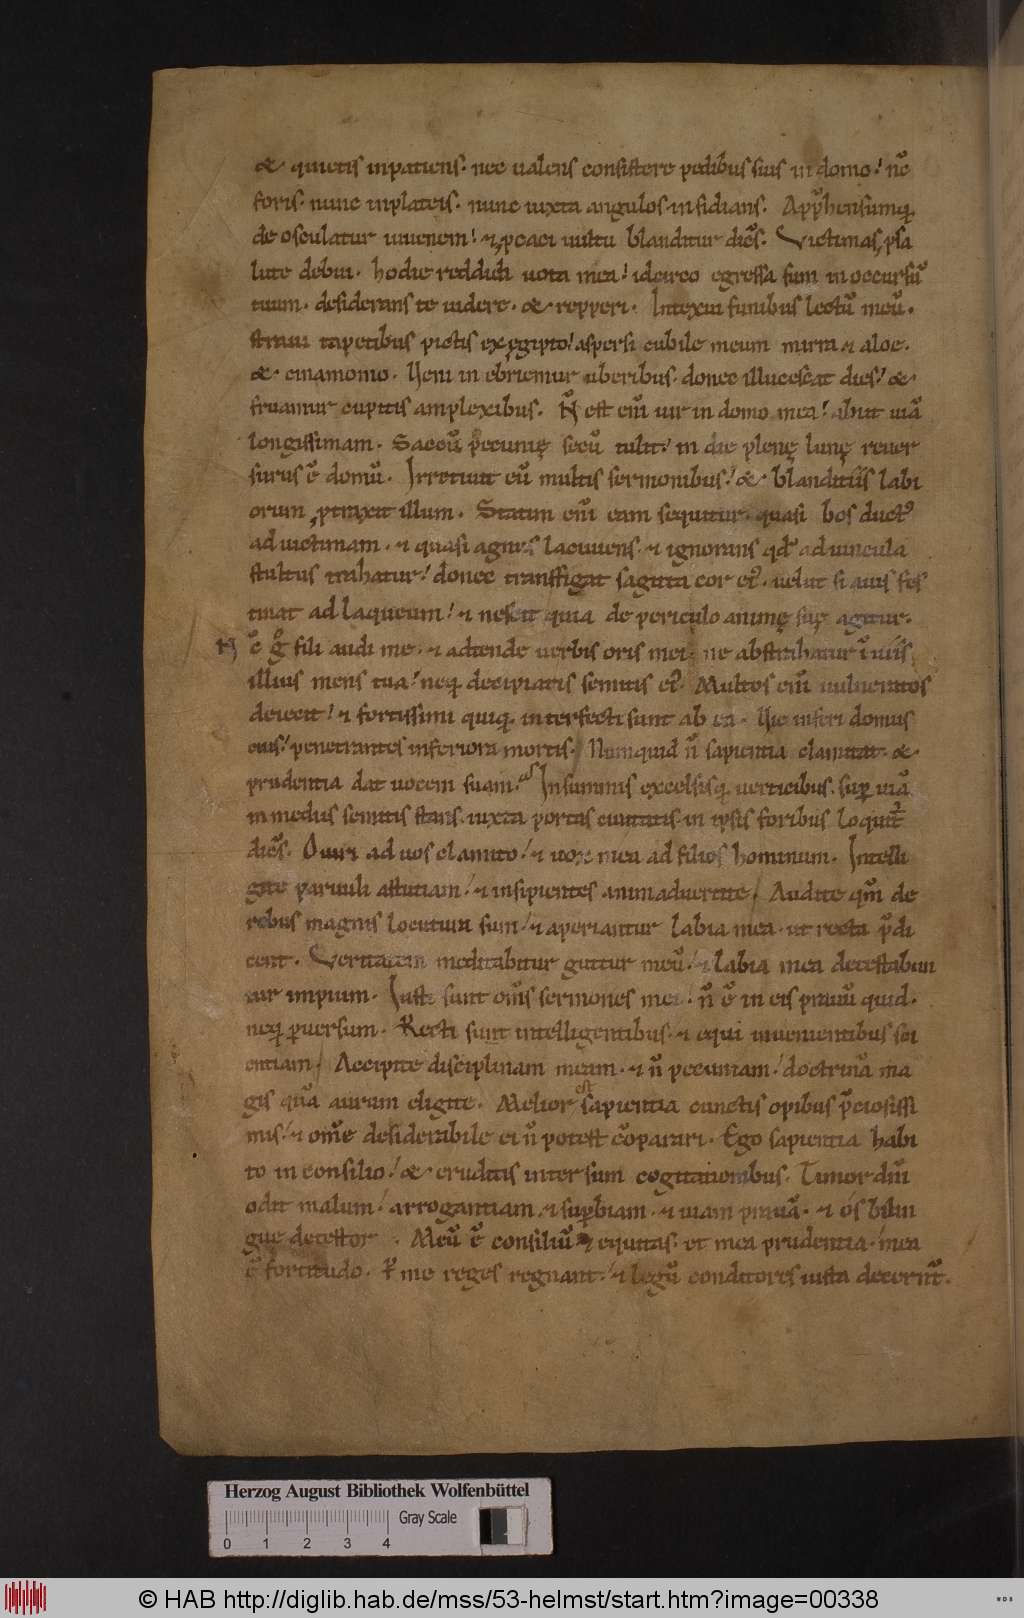 & quietis inpatiens. nec ualens consistere pedibus suis in domo. nc̄
foris. nunc inplateis. nunc iuxta angulos insidians. App̄hensumq;
de osculatur iuuenem. & ꝓcaci uultu blanditur dicēs. Victimas ꝓ sa
lute debui. hodie reddidi uota mea. idcirco egressa sum in occursū
tuum. desiderans te uidere. & repperi. Intexui funibus lectū meū.
straui tapetibus pictis ex ęgipto. aspersi cubile meum mirra & aloe.
& cinamomo. Ueni inebriemur uberibus. donec illucescat dies. &
fruamur cupitis amplexibus. N̄ est eni̅ uir in domo mea. abiit uiā
longissimam. Saccū pecunię secū tulit. in die plenę lunę reuer
surus ē domū. Irretiuit eū multis sermonibus. & blanditiis labi
orum ꝓtraxit illum. Statim eni̅ eam sequitur. quasi bos duct᷒
ad uictimam. & quasi agnus lasciuiens. & ignorans qd̄ ad uincula
stultus trahatur. donec transfigat sagitta cor ei᷒. uelut si auis fes
tinat ad laqueum. & nescit quia de periculo animę suę agitur.
N c̄ g̊ fili audi me. & adtende uerbis oris mei. ne abstrahatur ī uiis
illius mens tua. neq; decipiaris semitis ei᷒. Multos eni̅ uulneratos
deiecit. & fortissimi quiq; interfecti sunt ab ea. Uie inferi domus
eius. penetrantes inferiora mortis. Numquid n̄ sapientia clamitat. &
prudentia dat uocem suam. In summis excelsisq; uerticibus. sup̄ uiā
in mediis semitis stans. iuxta portas ciuitatis. in ipsis foribus loquit̄
dicēs. O uiri ad uos clamito. & uox mea ad filios hominum. Intelli
gite paruuli astutiam. & insipientes animaduertite. Audite qm̄ de
rebus magnis locutura sum. & aperiantur labia mea. ut recta p̄di
cent. Veritatem meditabitur guttur meū. & labia mea detestabun
tur impium. Iusti sunt om̄s sermones mei. n̄ ē in eis prauū quid.
neq; p̄uersum. Recti sunt intelligentibus. & equi inuenientibus sci
entiam. Accipite disciplinam meam. & n̄ pecuniam. doctrinā ma
gis quā aurum eligite. Melior est sapientia cunctis opibus p̄ciosissi
mis. & om̄e desiderabile ei n̄ potest cōparari. Ego sapientia habi
to in consilio. & eruditis intersum cogitationibus. Timor dn̄i
odit malum. arrogantiam & sup̄biam. & uiam prauā. & ós bilin
gue detestor. Meū ē consiliū & equitas. et mea prudentia. mea
ē fortitudo. P̄ me reges regnant. & legū conditores iusta decernt̄.
Herzog August Bibliothek Wolfenbüttel
Gray Scale
0 1 2 3 4
© HAB http://diglib.hab.de/mss/53-helmst/start.htm?image=00338